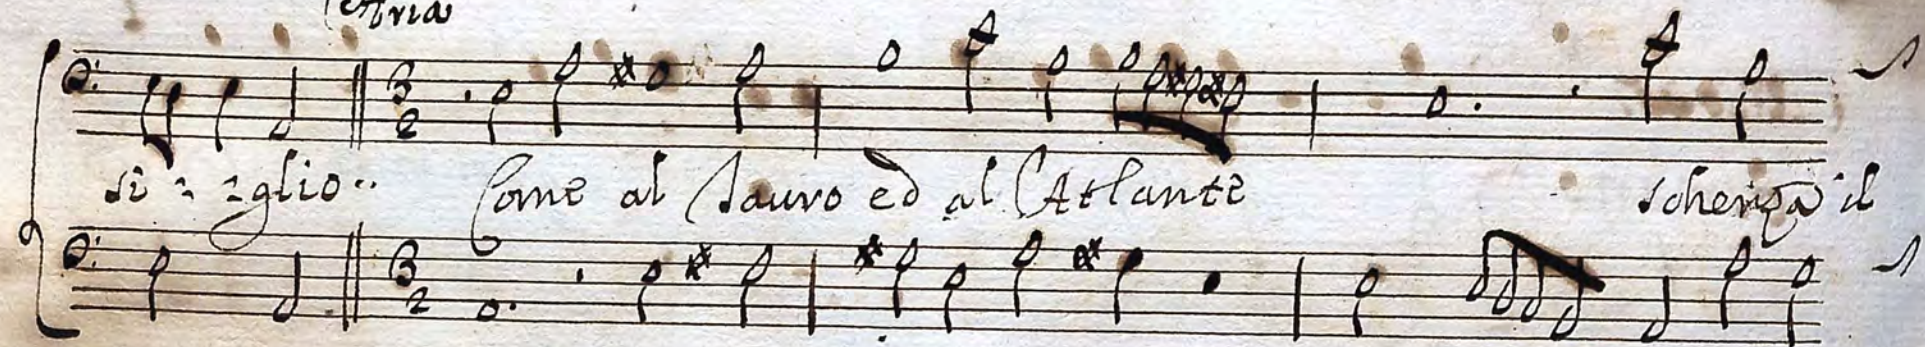 Aria
3 2
si - - glio. Come al Tauro ed al Atlante scherza il
3 2